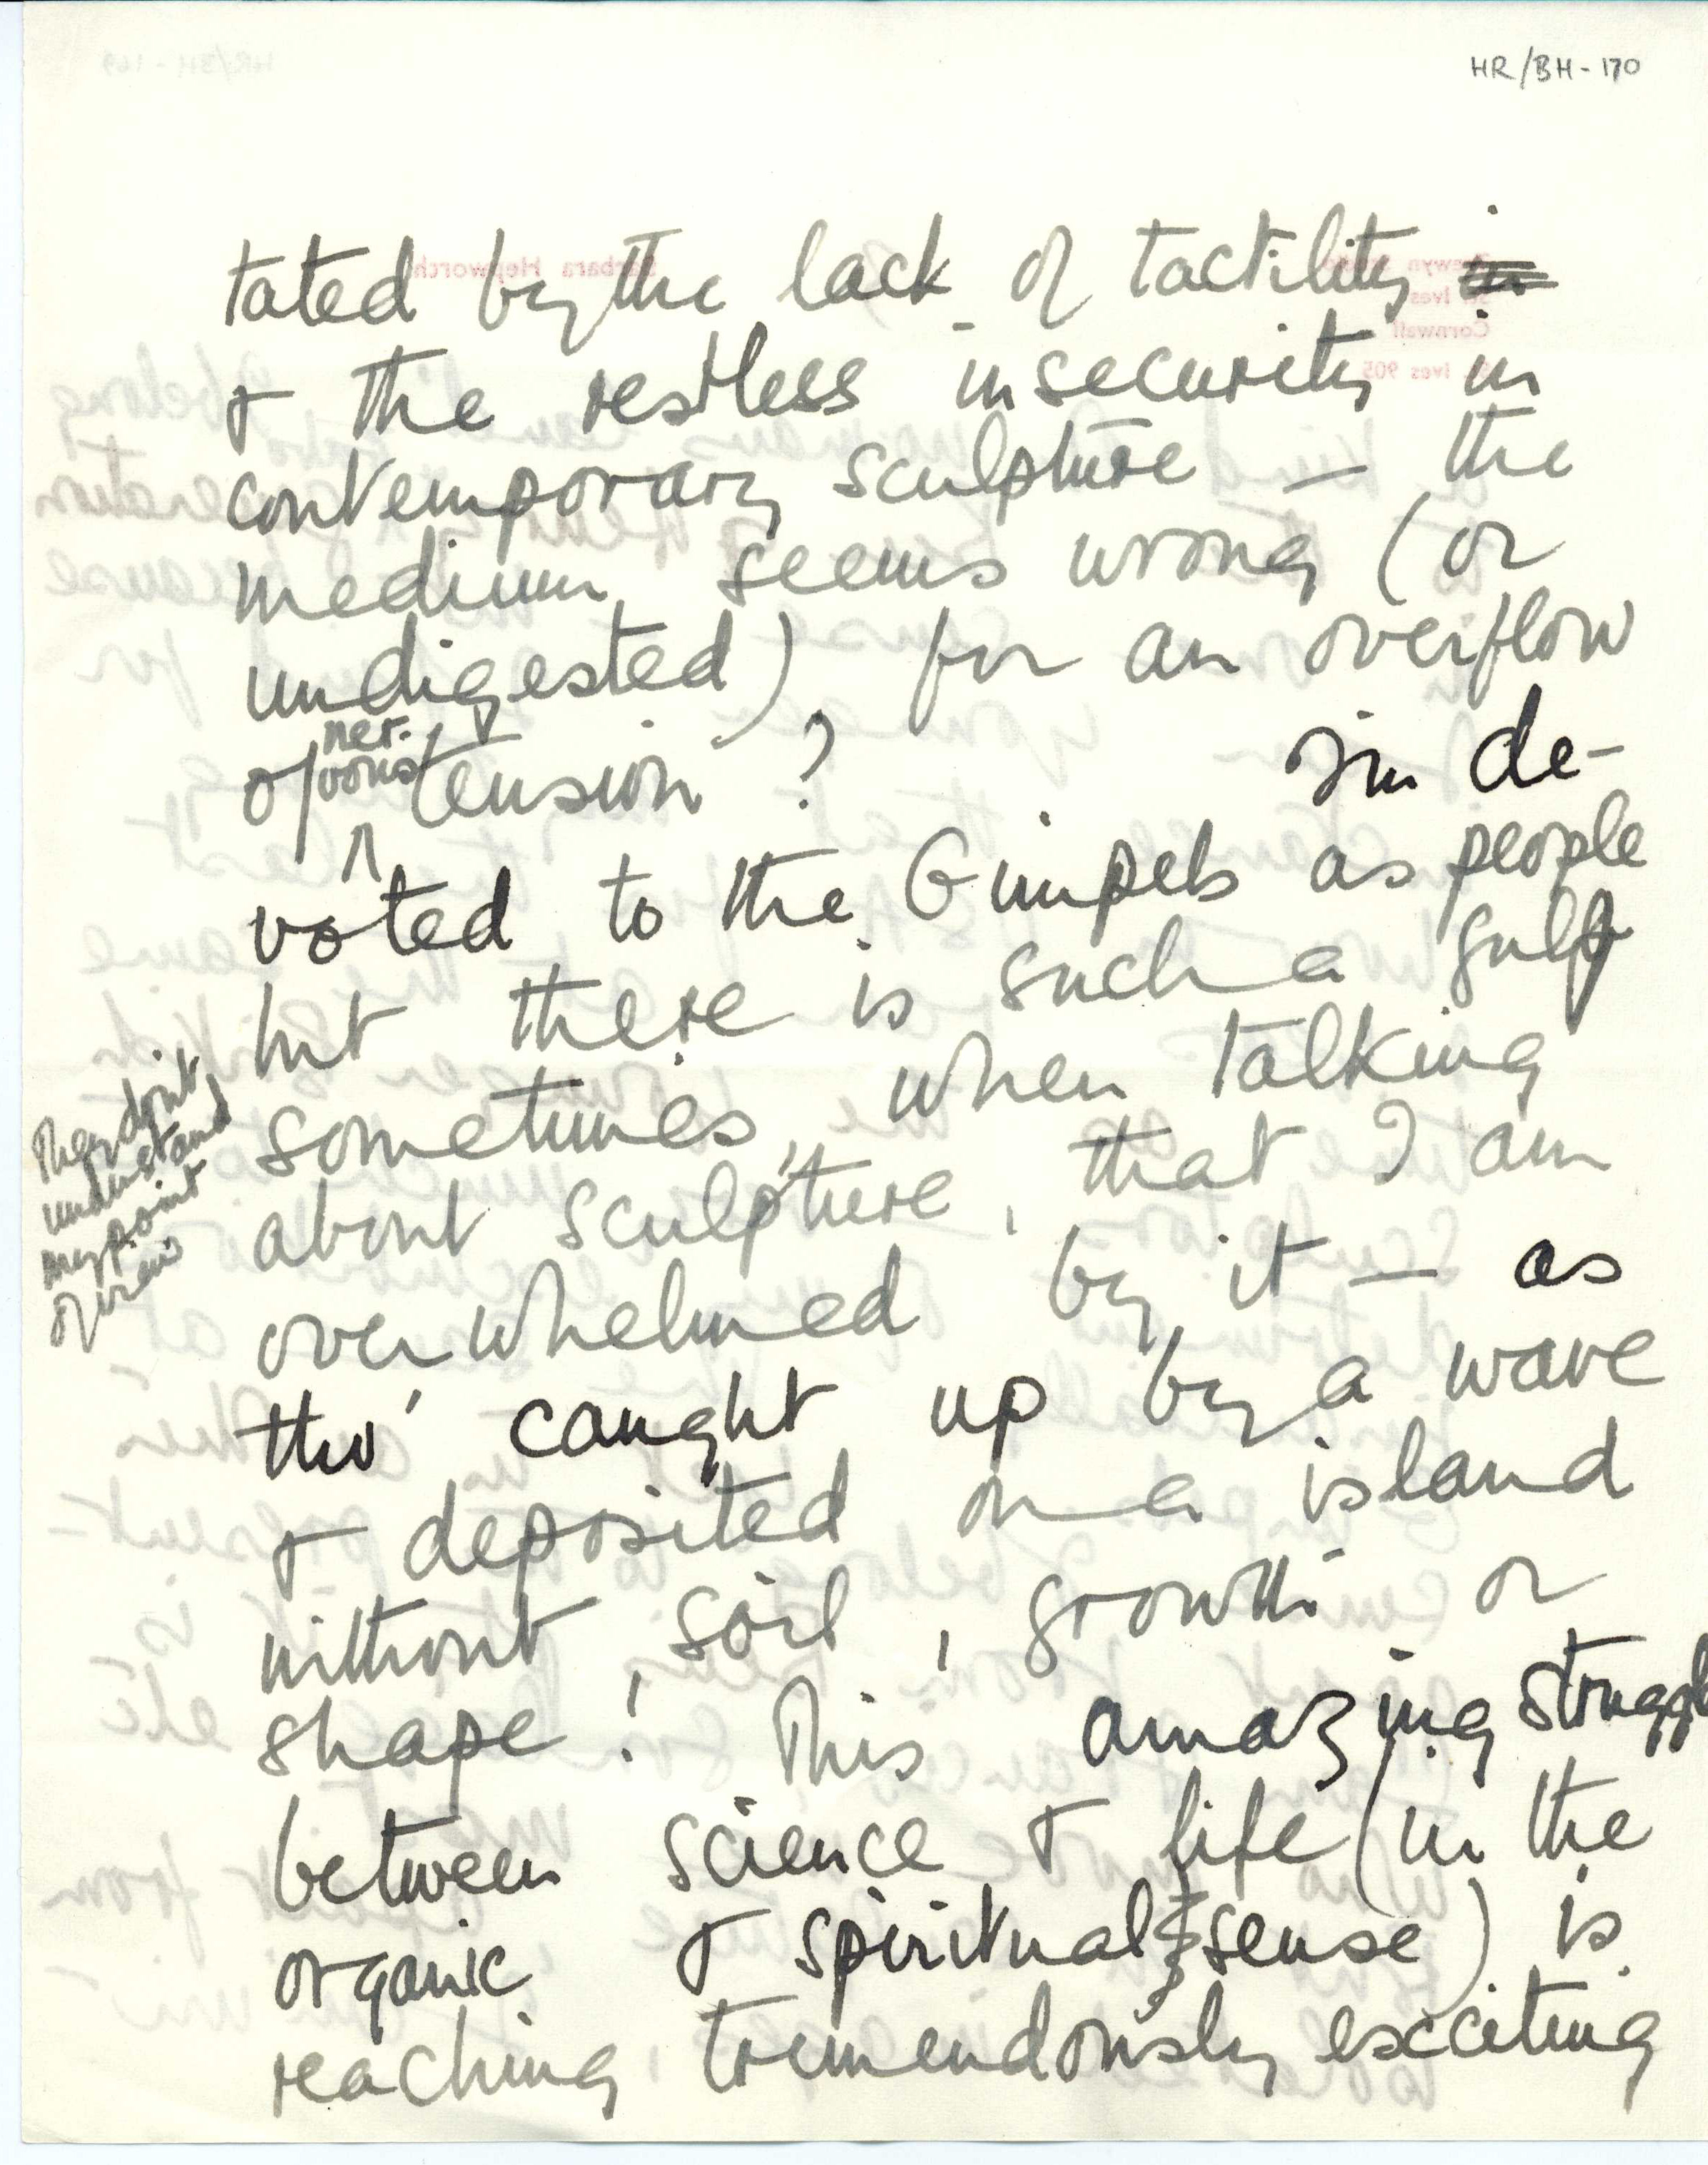 HR/BH - 170
tated by the lack of tactility
& the restless insecurity in
contemporary sculpture — the
medium seems wrong (or
undigested) for an overflow
of nervous tension? Im de-
voted to the Gimpels as people
but there is such a gulf
sometimes, when talking
about sculpture, that I am
overwhelmed by it — as
tho' caught up by a wave
& deposited on a island
without, soil, growth or
shape! This amazing struggle
between science & life (in the
organic & spiritual sense) is
reaching tremendously exciting
They dont
understand
my point
of view
Barbara Hepworth
Trewyn Studio
St Ives
Cornwall
St. Ives 905
HR/BH - 169